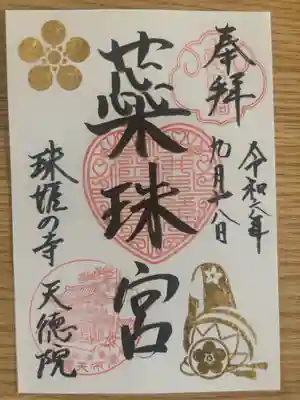 奉拝
令和六年
九月十八日
蘂珠宮
珠姫の寺
天徳院